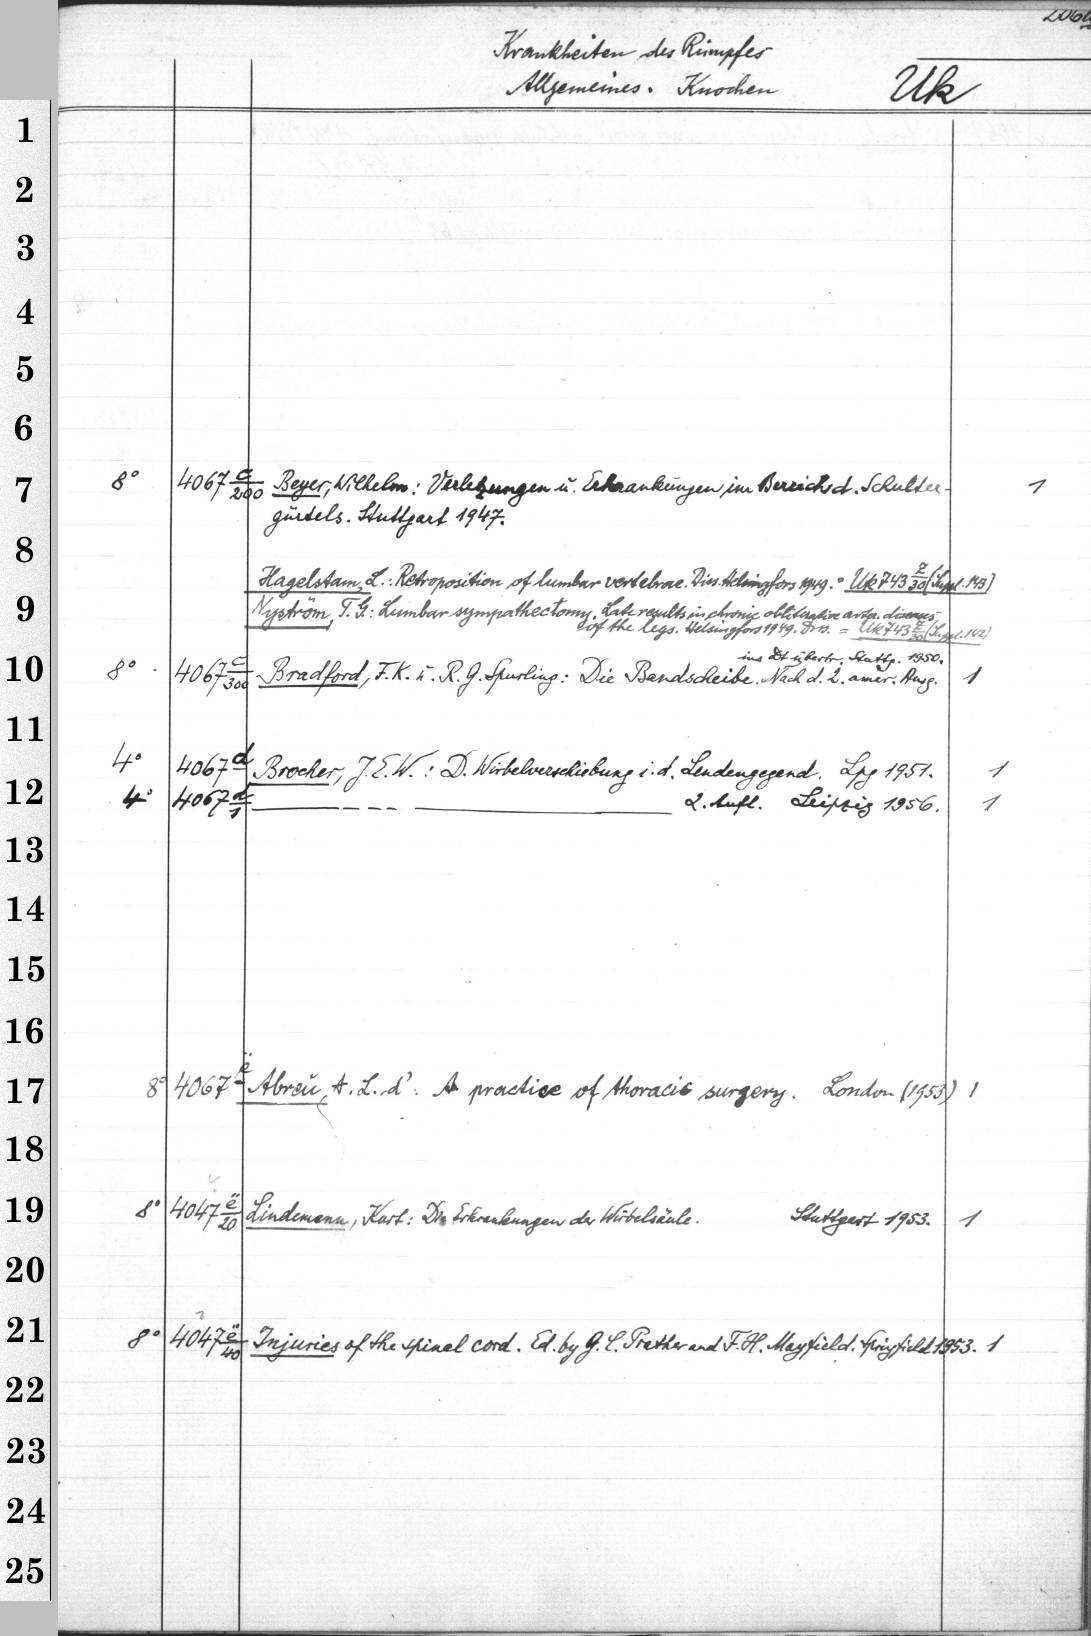 Krankheiten des Rumpfes
Allgemeines. Knochen Uk
1
2
3
4
5
6
7 8° 4067 c/200 Beyer, Wilhelm: Verletzungen u. Erkrankungen im Bereich d. Schulter- 1
gürtels. Stuttgart 1947.
8
Hagelstam, L.: Retroposition of lumbar vertebrae. Diss. Helsingfors 1949. = Uk 743 z/30 (Suppl. 143)
9 Nyström, T. G.: Lumbar sympathectomy. Late results in chronic obliterative arter. diseases
of the legs. Helsingfors 1949. Diss. = Uk 743 z/30 (Suppl. 142)
ins Dt übertr. Stuttg. 1950.
10 8° 4067 c/300 Bradford, F. K. u. R. G. Spurling: Die Bandscheibe. Nach d. 2. amer. Ausg. 1
11
4° 4067 d Brocher, J. E. W.: D. Wirbelverschiebung i. d. Lendengegend. Lpg 1951. 1
12 4° 4067 d/1 2. Aufl. Leipzig 1956. 1
13
14
15
16
17 8° 4067 ë Abreu, A. L. d': A practice of thoracic surgery. London (1953) 1
18
19 8° 4047 ë/20 Lindemann, Kurt: Die Erkrankungen der Wirbelsäule. Stuttgart 1953. 1
20
21 8° 4047 ë/40 Injuries of the spinal cord. Ed. by G. C. Prather and F. H. Mayfield. Springfield 1953. 1
22
23
24
25